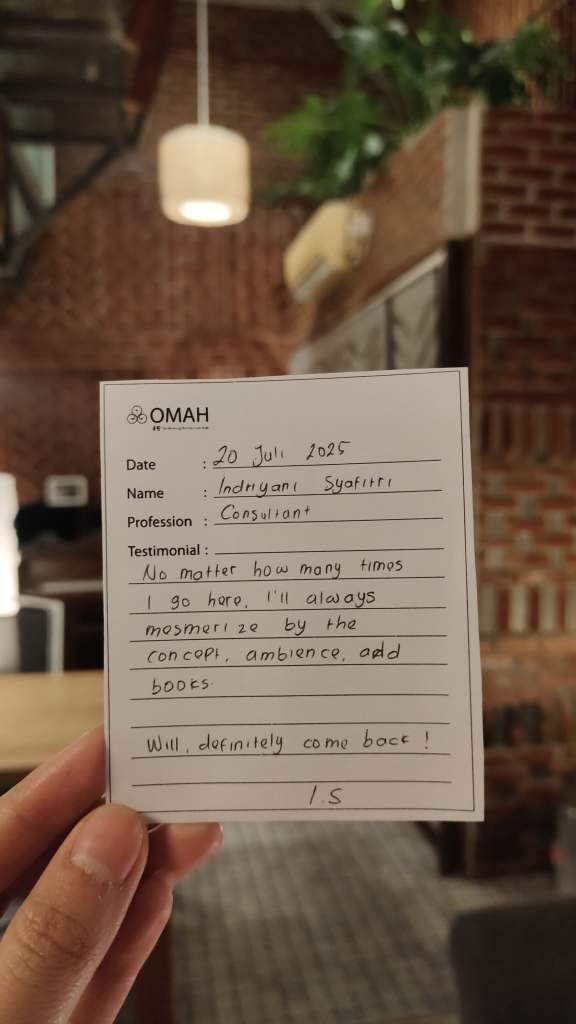 OMAH
Date : 20 Juli 2025
Name : Indriyani Syafitri
Profession : Consultant
Testimonial :
No matter how many times
I go here, I'll always
mesmerize by the
concept, ambience, add
books.
Will, definitely come back !
I.S